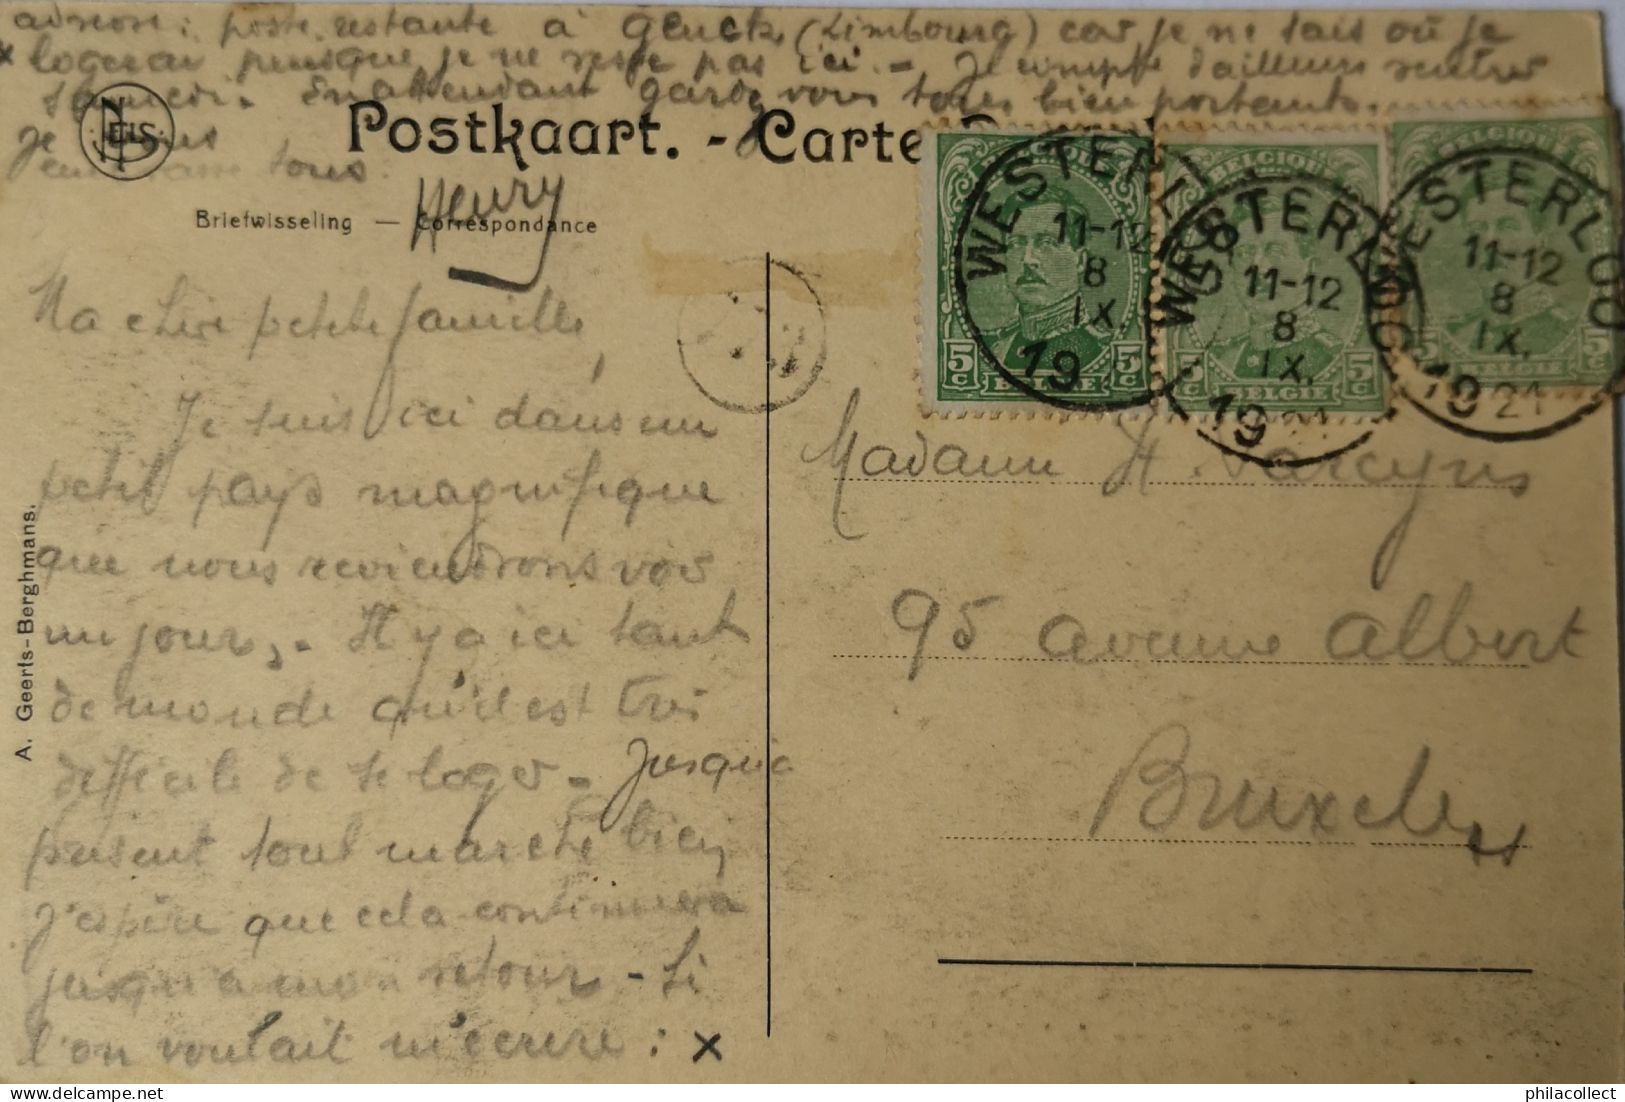 adresse : poste restante à Genck (Limbourg) car je ne sais où je
x logerai puisque je ne reste pas ici. - Je compte d'ailleurs rentrer
samedi. En attendant gardez vous tous bien portants.
Je vous
embrasse tous.
NELS
Postkaart. - Carte
Henry
Briefwisseling — Correspondance
WESTERLOO
11-12
8
IX.
19 21
WESTERLOO
11-12
8
IX.
19 21
WESTERLOO
11-12
8
IX.
19 21
BELGIQUE
5c 5c
BELGIE
Ma chère petite famille,
Je suis ici dans un
petit pays magnifique
que nous reviendrons voir
un jour. - Il y a ici tant
de monde qu'il est très
difficile de se loger - Jusqu'à
présent tout marche bien
j'espère que cela continuera
jusqu'à mon retour - Si
l'on voulait m'écrire : x
Madame H.
95 avenue Albert
Bruxelles
A. Geerts-Berghmans.
philacollect